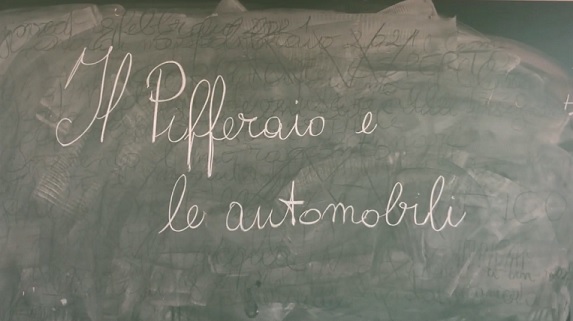 Il Pifferaio e
le automobili